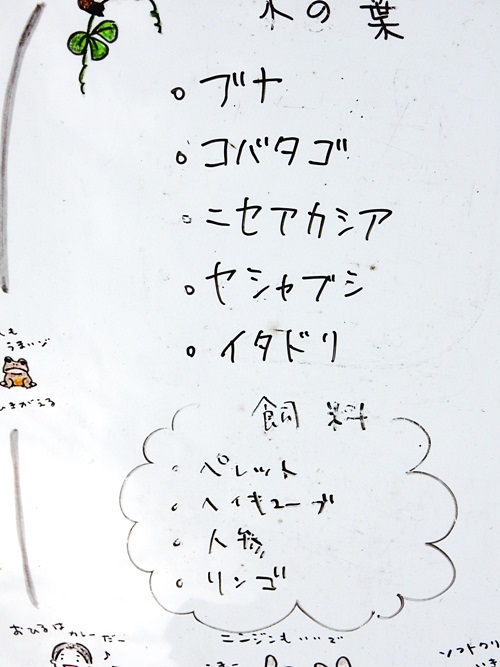 木の葉
○ ブナ
○ コバタゴ
○ ニセアカシア
○ ヤシャブシ
○ イタドリ
うまいゾ
ひきがえる
飼料
○ ペレット
○ ヘイキューブ
○ 人参
○ リンゴ
おひるはカレーだー♪
ニンジンもいいで
ソフトクリ